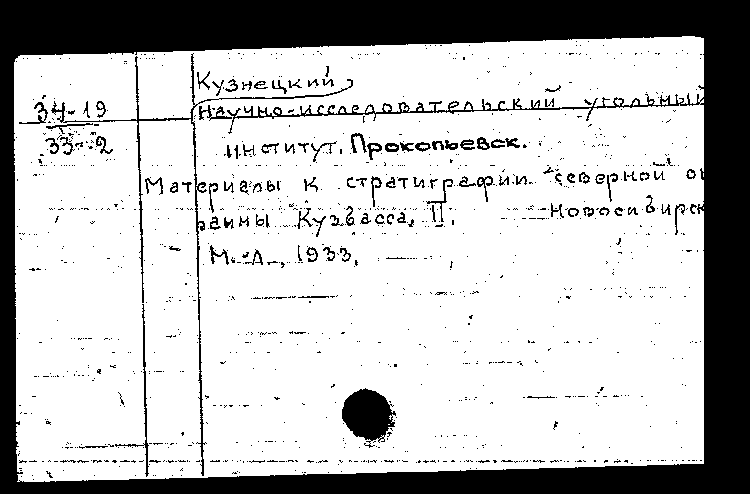 Кузнецкий
34-19
научно-исследовательский угольный
33-2
институт. Прокопьевск.
Материалы к стратиграфии северной
раины Кузбасса. II. Новосибирск
М.-Л., 1933.